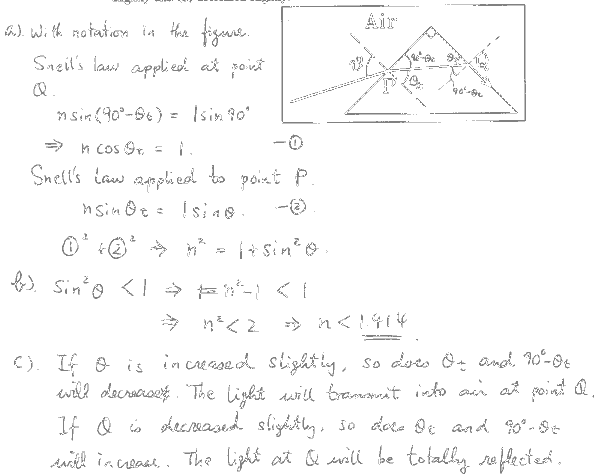 a). With notation in the figure.
Snell's law applied at point
Q.
n sin(90°-θt) = 1 sin 90°
⇒ n cos θt = 1. —①
Snell's law applied to point P.
n sin θt = 1 sin θ. —②
①² + ②² ⇒ n² = 1 + sin² θ.
b). Sin² θ < 1 ⇒ n²-1 < 1
⇒ n² < 2 ⇒ n < 1.414.
c). If θ is increased slightly, so does θt and 90°-θt
will decrease. The light will transmit into air at point Q.
If θ is decreased slightly, so does θt and 90°-θt
will increase. The light at Q will be totally reflected.
Air
θ
90°-θt
θt
Q
P
θt
90°-θt